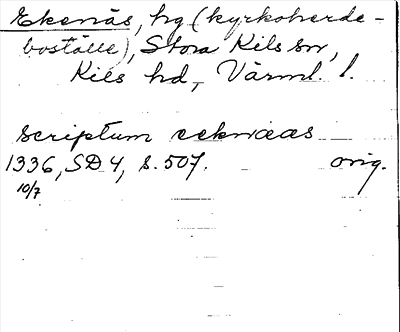 Ekenäs, hg (kyrkoherde-
boställe), Stora Kils sn,
Kils hd, Värml. l.
scriptum eeknæas
1336, SD 4, s. 507. orig.
10/7